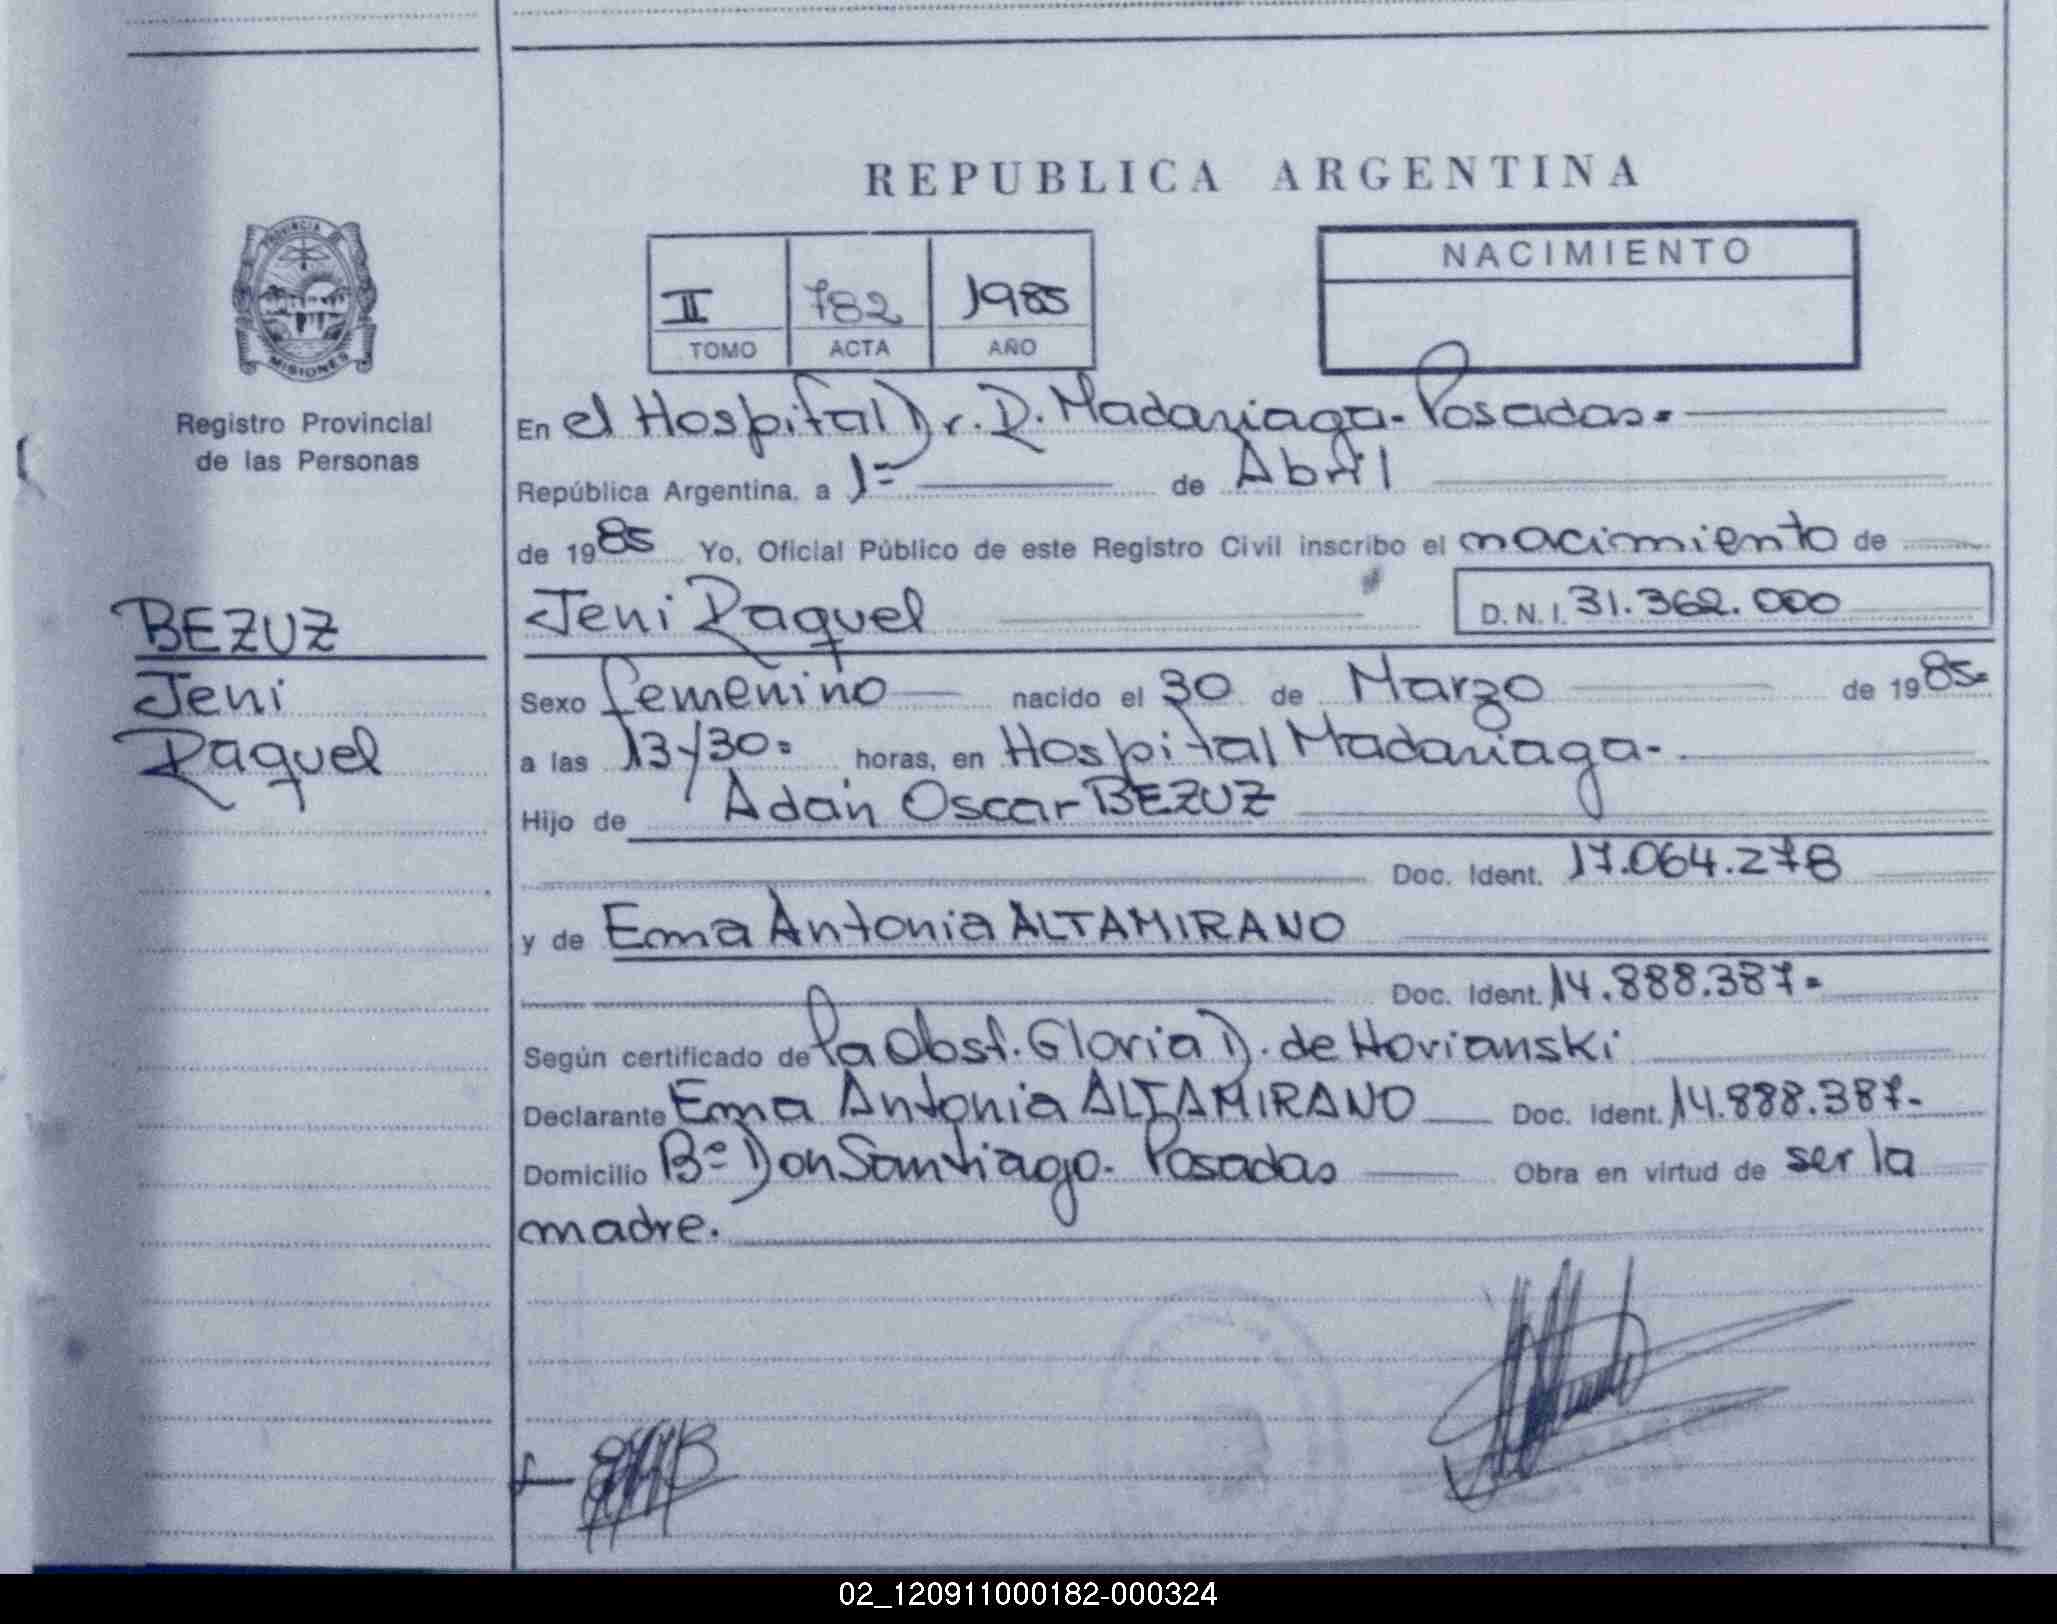 REPUBLICA ARGENTINA
PROVINCIA DE
MISIONES
Registro Provincial
de las Personas
II 782 1985
TOMO ACTA AÑO
NACIMIENTO
En el Hospital Dr. R. Madariaga - Posadas.-
República Argentina, a 1º de Abril
de 1985 Yo, Oficial Público de este Registro Civil inscribo el nacimiento de
BEZUZ
Jeni
Raquel
Jeni Raquel D. N. I. 31.362.000
Sexo femenino nacido el 30 de Marzo de 1985.
a las 13y30. horas, en Hospital Madariaga-
Hijo de Adán Oscar BEZUZ
Doc. Ident. 17.064.278
y de Ema Antonia ALTAMIRANO
Doc. Ident. 14.888.387.
Según certificado de la Obst. Gloria D. de Hovianski
Declarante Ema Antonia ALTAMIRANO Doc. Ident. 14.888.387-
Domicilio Bº Don Santiago- Posadas Obra en virtud de ser la
madre.
02_120911000182-000324